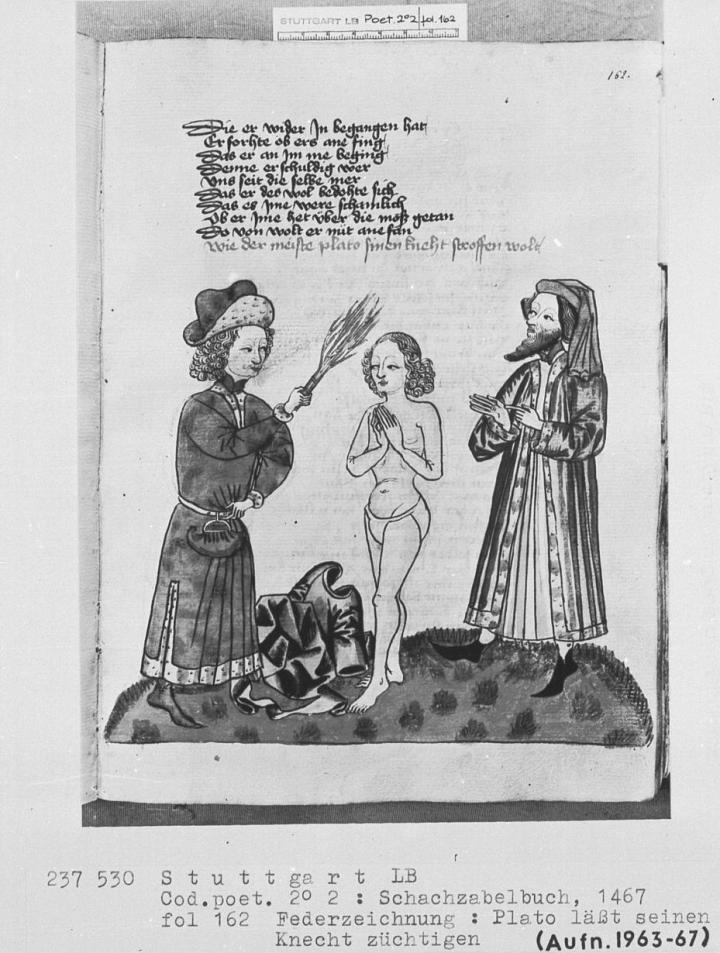 STUTTGART LB Poet. 2º 2 fol. 162
162.
Die er wider Jn begangen hat
Er forhte ob ers ane fing
Das er an Jm me beging
Denne er schuldig wer
Vns seit die selbe mer
Das er des wol bedohte sich
Das es Jme were schamlich
Ob er Jme het vber die moß getan
Do von wolt er nüt ane fan
wie der meiste plato sinen kneht stroffen wolt
237 530 Stuttgart LB
Cod.poet. 2º 2 : Schachzabelbuch, 1467
fol 162 Federzeichnung : Plato läßt seinen
Knecht züchtigen (Aufn.1963-67)